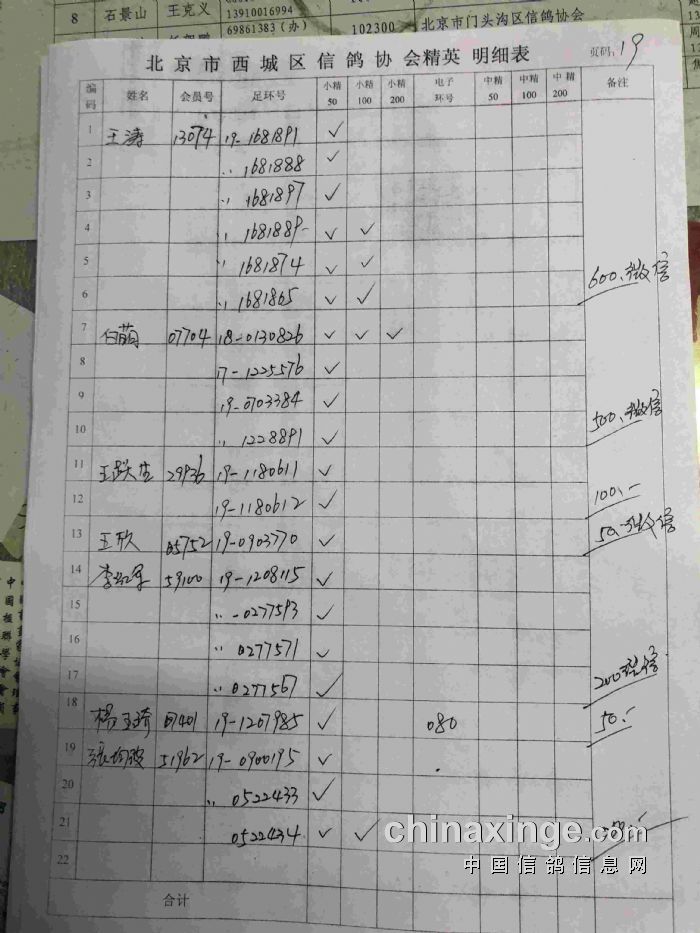 8 石景山 王克义 13910016994
69861383（办） 102300 北京市门头沟区信鸽协会
北京市西城区信鸽协会精英 明细表 页码：19
编码 姓名 会员号 足环号 小精50 小精100 小精200 电子环号 中精50 中精100 中精200 备注
1 王涛 13074 19-1681891 ✓
2 〃 1681888 ✓
3 〃 1681897 ✓
4 〃 1681889 ✓ ✓
5 〃 1681874 ✓ ✓
6 〃 1681865 ✓ ✓ 600.微信
7 白萌 07704 18-0130826 ✓ ✓ ✓
8 17-1225576 ✓
9 19-0703384 ✓
10 〃 1228891 ✓ 500.微信
11 29936 19-1180611 ✓
12 19-1180612 ✓ 100.-
13 王欣 05752 19-0903770 ✓ 50.微信
14 59100 19-1208115 ✓
15 〃 -0277593 ✓
16 〃 0277571 ✓
17 〃 0277567 ✓ 200微信
18 杨玉琦 07401 19-1207985 ✓ 080 50.-
19 51962 19-0900195 ✓
20 〃 0522433 ✓
21 0522434 ✓ ✓
22
合计
chinaxinge.com
中国信鸽信息网